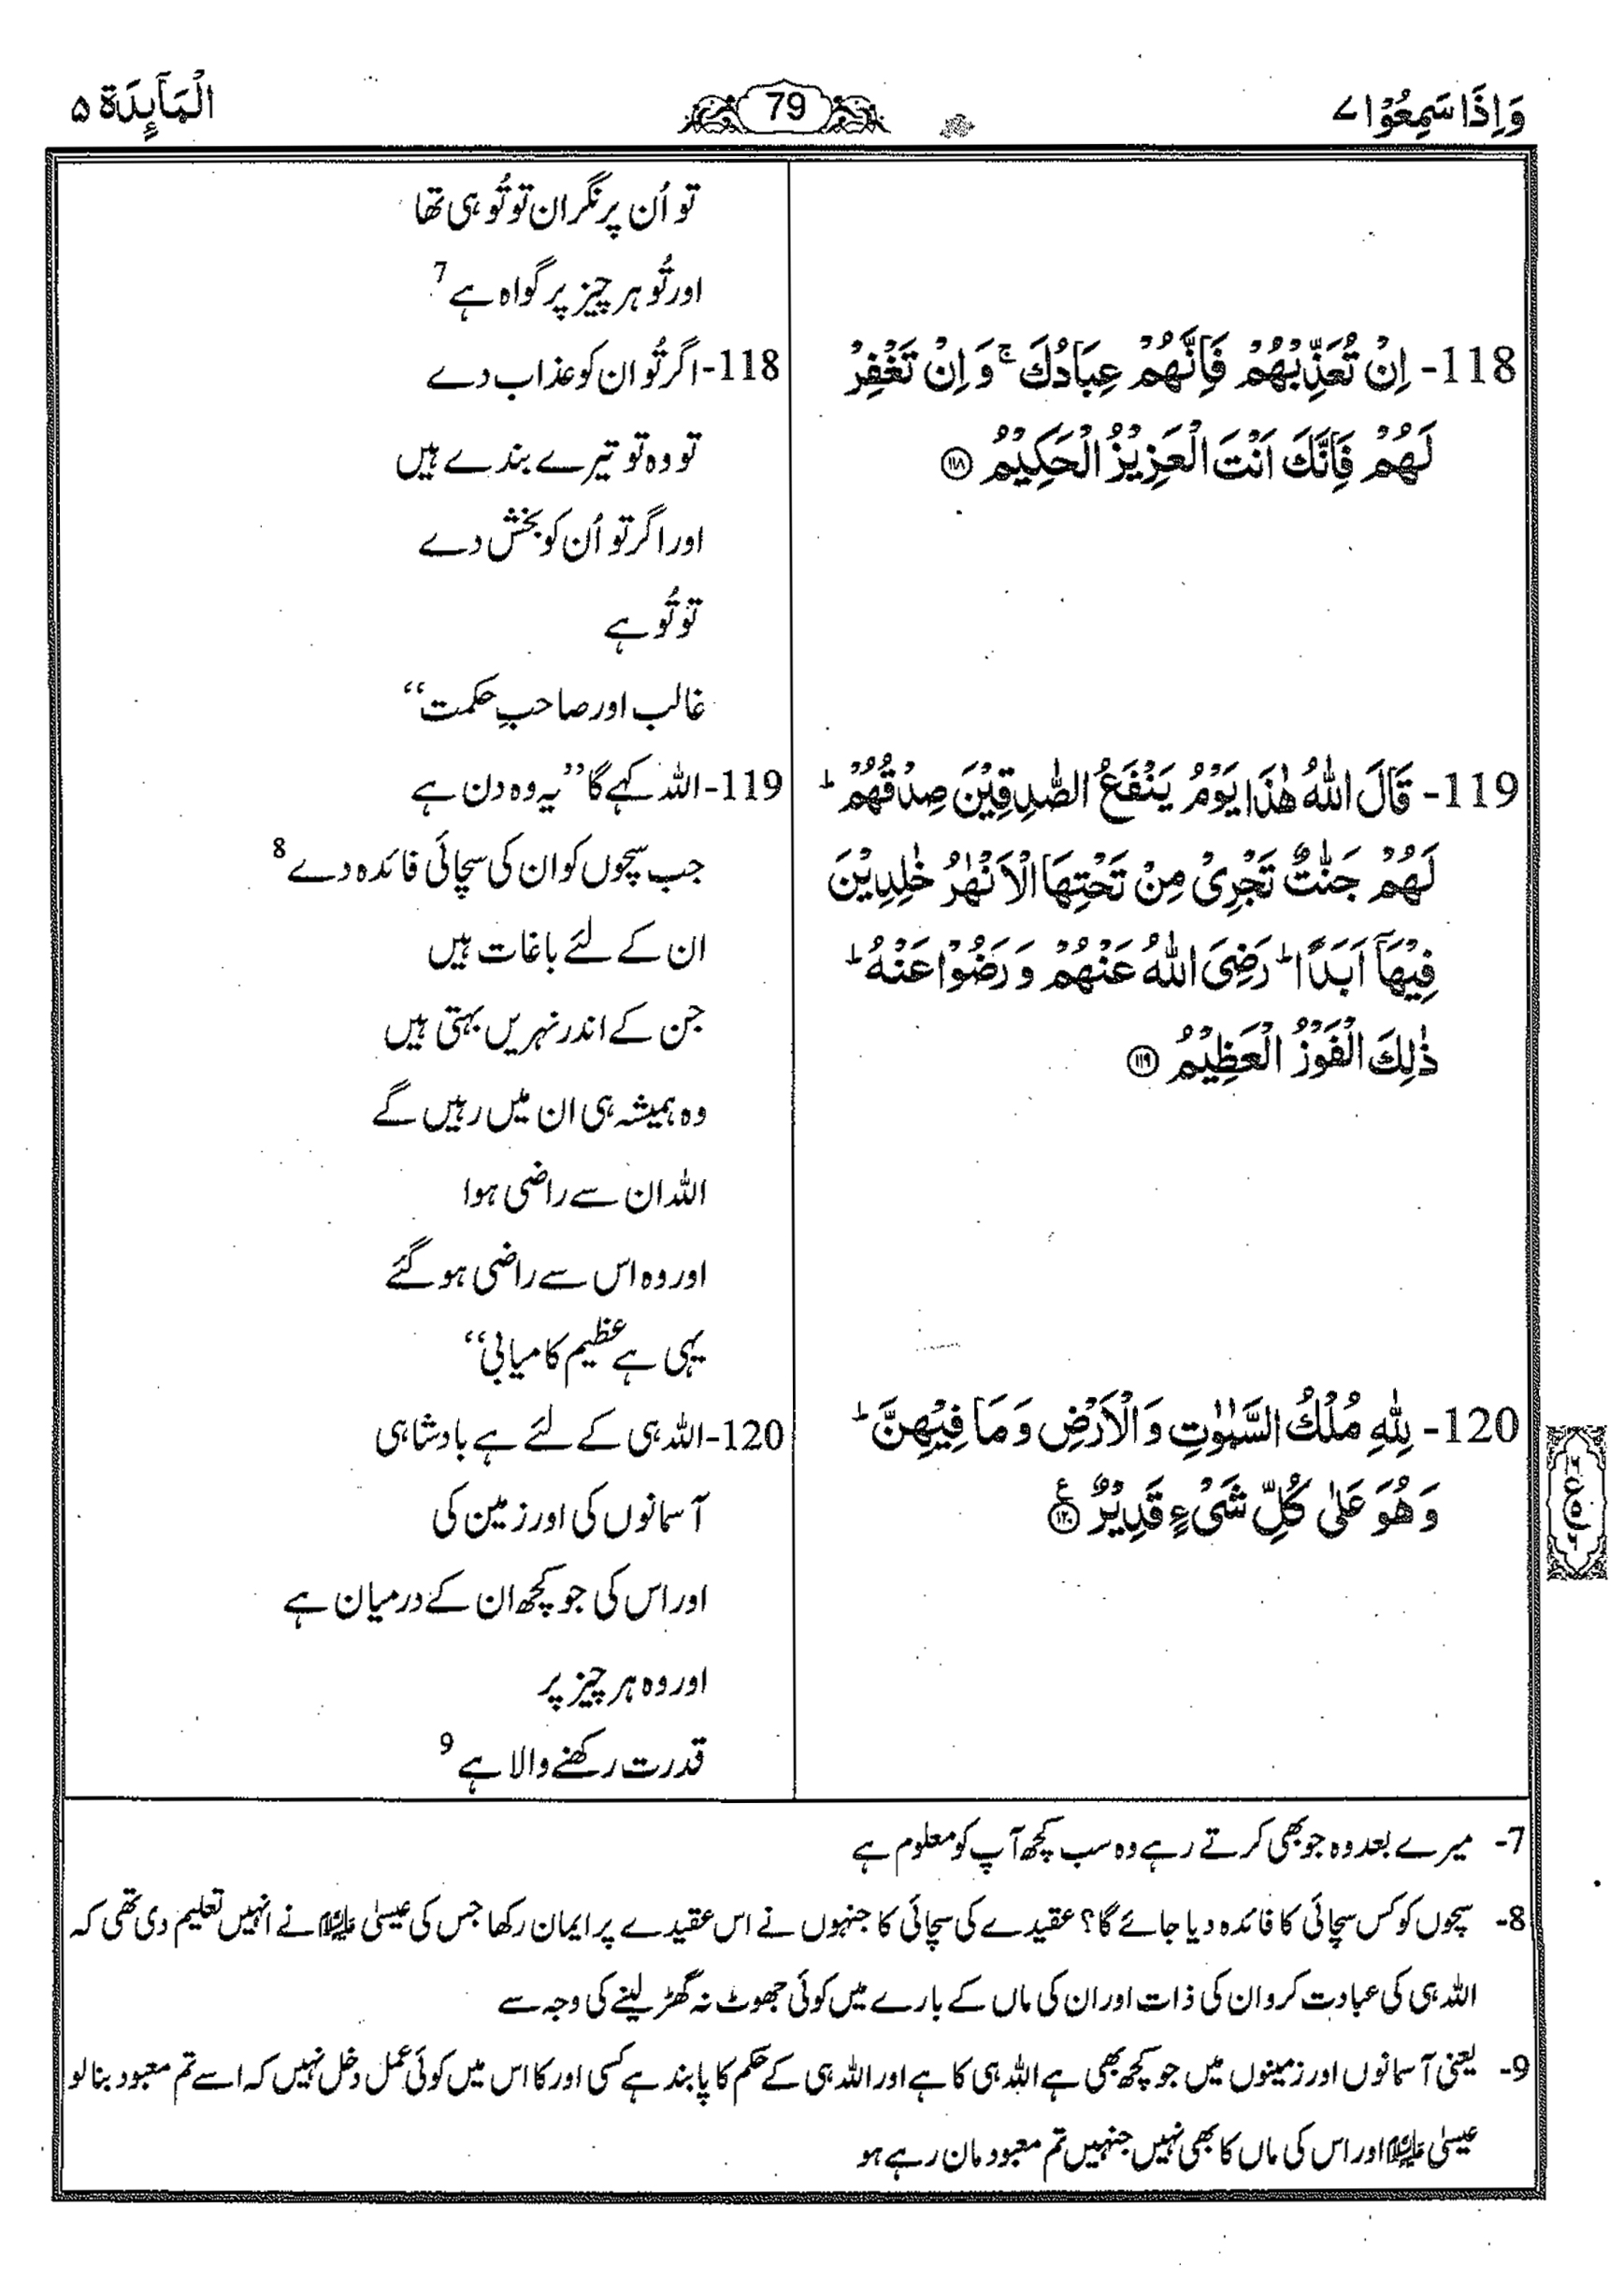 وَاِذَا سَمِعُوْا ٧
79
الْمَآئِدَة ۵
118- اِنْ تُعَذِّبْهُمْ فَاِنَّهُمْ عِبَادُكَ ۚ وَ اِنْ تَغْفِرْ
لَهُمْ فَاِنَّكَ اَنْتَ الْعَزِيْزُ الْحَكِيْمُ ۝۱۱۸
119- قَالَ اللّٰهُ هٰذَا يَوْمُ يَنْفَعُ الصّٰدِقِيْنَ صِدْقُهُمْ ؕ
لَهُمْ جَنّٰتٌ تَجْرِيْ مِنْ تَحْتِهَا الْاَنْهٰرُ خٰلِدِيْنَ
فِيْهَاۤ اَبَدًا ؕ رَضِيَ اللّٰهُ عَنْهُمْ وَ رَضُوْا عَنْهُ ؕ
ذٰلِكَ الْفَوْزُ الْعَظِيْمُ ۝۱۱۹
120- لِلّٰهِ مُلْكُ السَّمٰوٰتِ وَ الْاَرْضِ وَ مَا فِيْهِنَّ ؕ
وَ هُوَ عَلٰى كُلِّ شَيْءٍ قَدِيْرٌ ۝۱۲۰ ع
تو اُن پر نگران تو تُو ہی تھا
اور تُو ہر چیز پر گواہ ہے 7
118-اگر تُو ان کو عذاب دے
تو وہ تو تیرے بندے ہیں
اور اگر تو اُن کو بخش دے
تو تُو ہے
غالب اور صاحبِ حکمت“
119-اللہ کہے گا ”یہ وہ دن ہے
جب سچوں کو ان کی سچائی فائدہ دے 8
ان کے لئے باغات ہیں
جن کے اندر نہریں بہتی ہیں
وہ ہمیشہ ہی ان میں رہیں گے
اللہ ان سے راضی ہوا
اور وہ اس سے راضی ہو گئے
یہی ہے عظیم کامیابی“
120-اللہ ہی کے لئے ہے بادشاہی
آسمانوں کی اور زمین کی
اور اس کی جو کچھ ان کے درمیان ہے
اور وہ ہر چیز پر
قدرت رکھنے والا ہے 9
7- میرے بعد وہ جو بھی کرتے رہے وہ سب کچھ آپ کو معلوم ہے
8- سچوں کو کس سچائی کا فائدہ دیا جائے گا؟ عقیدے کی سچائی کا جنہوں نے اس عقیدے پر ایمان رکھا جس کی عیسیٰ علیہ السلام نے انہیں تعلیم دی تھی کہ
اللہ ہی کی عبادت کرو ان کی ذات اور ان کی ماں کے بارے میں کوئی جھوٹ نہ گھڑ لینے کی وجہ سے
9- یعنی آسمانوں اور زمینوں میں جو کچھ بھی ہے اللہ ہی کا ہے اور اللہ ہی کے حکم کا پابند ہے کسی اور کا اس میں کوئی عمل دخل نہیں کہ اسے تم معبود بنا لو
عیسیٰ علیہ السلام اور اس کی ماں کا بھی نہیں جنہیں تم معبود مان رہے ہو